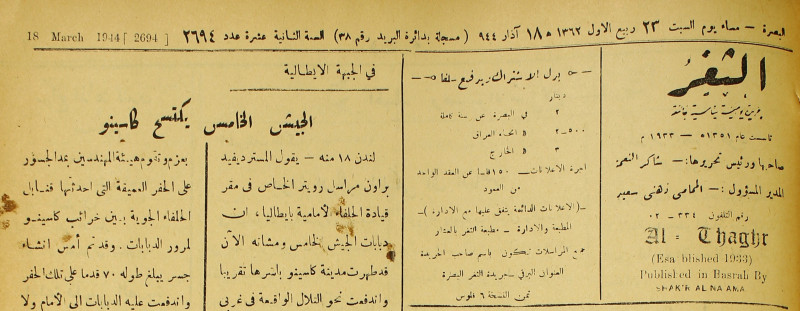 البصرة — مساء يوم السبت ٢٣ ربيع الاول ١٣٦٢ هـ ١٨ آذار ٩٤٤ ( مسجلة بدائرة البريد رقم ٣٨) السنة الثانية عشرة عدد ٢٦٩٤
18 March 1944 [ 2694 ]
الثغر
جريدة يومية سياسية جامعة
تأسست عام ١٣٥١ هـ — ١٩٣٣ م
صاحبها ورئيس تحريرها :— شاكر النعمة
المدير المسؤول :— المحامي زهني سعيد
رقم التلفون ٣٣٤ - ٠٢
Al - Thaghr
(Esa blished 1933)
Published in Basrah By
SHAK'R AL NAAMA
بدل الاشتراك يدفع سلفا
دينار
٢ في البصرة عن سنة كاملة
٥٠٠—٢ » انحاء العراق
٣ » الخارج
اجرة الاعلانات — ١٥٠ فلسا عن العقد الواحد
من العمود
—( الاعلانات الدائمة يتفق عليها مع الادارة )—
المطبعة والادارة — مطبعة الثغر بالعشار
جميع المراسلات تكون باسم صاحب الجريدة
العنوان البرقي — جريدة الثغر البصرة
ثمن النسخة ٦ فلوس
في الجبهة الايطالية
الجيش الخامس يكتسح كاسينو
لندن ١٨ منه — يقول المستر ديفيد
براون مراسل رويتر الخاص في مقر
قيادة الحلفاء لأمامية بايطاليا ، ان
دبابات الجيش الخامس ومشاته الآن
قد طهرت مدينة كاسينو باسرها تقريبا
واندفعت نحو التلال الواقعة في غربي
يعزم وتقوم هيئة المهندسين بمد الجسور
على الحفر العميقة التي احدثتها قنابل
الحلفاء الجوية بين خرائب كاسينو
لمرور الدبابات . وقد تم أمس انشاء
جسر يبلغ طوله ٧٠ قدما على تلك الحفر
واندفعت عليه الدبابات الى الامام ولا